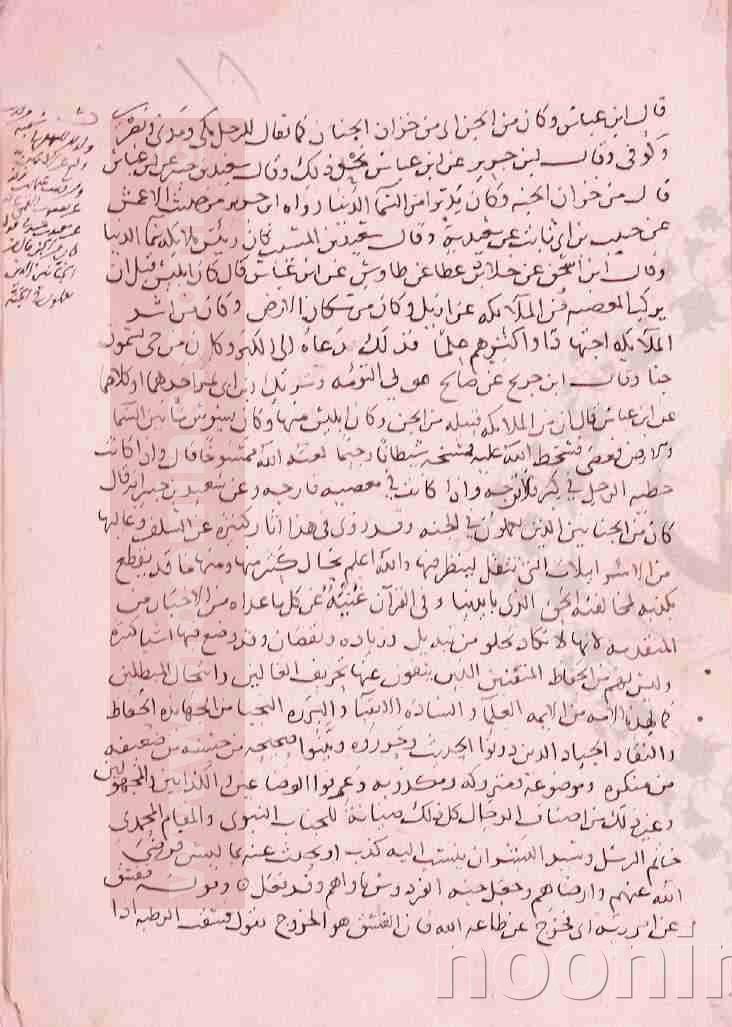 قال ابن عباس وكان من الجن اي من خزان الجنان كما يقال للرجل مكي ومدني وبصري
وكوفي وقال ابن جريج عن ابن عباس نحو ذلك وقال سعيد بن جبير عن ابن عباس
قال من خزان الجنة وكان يدبر امر السما الدنيا رواه ابن جرير من حديث الاعمش
عن حبيب بن ابي ثابت عن سعيد به وقال سعيد بن المسيب كان رئيس ملايكة سما الدنيا
وقال ابن اسحق عن خلاد بن عطا عن طاوس عن ابن عباس قال كان ابليس قبل ان
يركب المعصية من الملايكة عزازيل وكان من سكان الارض وكان من اشد
الملايكة اجتهادا واكثرهم علما فذلك دعاه الى الكبر وكان من حي يسمون
جنا وقال ابن جريج عن صالح مولى التوءمة وشريك بن ابي نمر احدهما او كلاهما
عن ابن عباس قال ان من الملايكة قبيلة من الجن وكان ابليس منها وكان يسوس ما بين السما
والارض فعصى فسخط الله عليه فمسخه شيطانا رجيما لعنه الله ممسوخا قال واذا كانت
خطية الرجل في كبر فلا ترجه واذا كانت في معصية فارجه وعن سعيد بن جبير انه قال
كان من الجنانين الذين يعملون في الجنة وقد روي في هذا اثار كثيرة عن السلف وغالبها
من الاسرائيلات التي تنقل لينظر فيها والله اعلم بحال كثير منها ومنها ما قد يقطع
بكذبه لمخالفته الحق الذي بايدينا وفي القرآن غنية عن كل ما عداه من الاخبار من
المتقدمة لانها لا تكاد تخلو من تبديل وزيادة ونقصان وقد وضع فيها اشيا كثيرة
وليس لهم من الحفاظ المتقنين الذين ينفون عنها تحريف الغالين وانتحال المبطلين
كما لهذه الامة من الايمة العلما والسادة الاتقيا والبررة النجبا من الجهابذة الحفاظ
والنقاد الجياد الذين دونوا الحديث وحرروه وبينوا صحيحه من حسنه من ضعيفه
من منكره وموضوعه ومتروكه ومكذوبه وعرفوا الوضاعين والكذابين والمجهولين
وغير ذلك من اصناف الرجال كل ذلك صيانة للجناب النبوي والمقام المحمدي
خاتم الرسل وسيد البشر ان ينسب اليه كذب او يحدث عنه بما ليس منه فرضي
الله عنهم وارضاهم وجعل جنة الفردوس ماواهم وقد فعل وقوله ففسق
عن امر ربه اي فخرج عن طاعة الله فان الفسق هو الخروج يقول فسقت الرطبة اذا